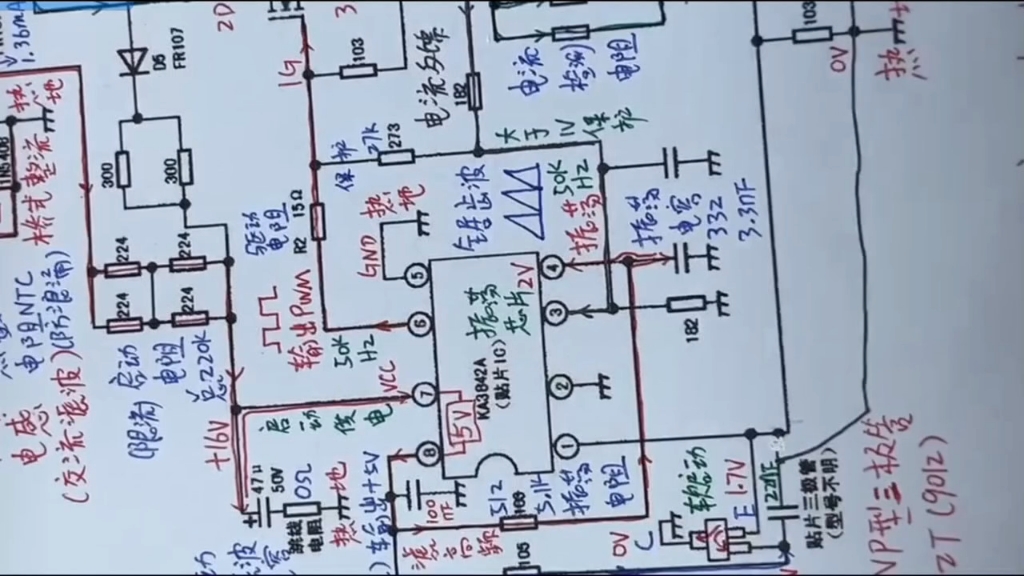 1.36mA
D5
FR107
2D
3
103
1G
103
0V
热
热地
桥式整流
300
300
电流反馈
1B2
电流
检测
电阻
大于1V保护
保护
27K
273
驱动
电阻
15Ω
R2
热地
GND
全锯齿波
50K
HZ
振荡
振荡
电容
332
3.3nF
224
224
224
224
电阻NTC
(防浪涌)
电感
(交流滤波)
(限流)
启动
电阻
总220K
输出PWM
50K
HZ
5
6
7
8
4
3
2
1
2V
振荡
芯片
KA3842A
(贴片IC)
5V
VCC
启动
供电
1B2
+16V
47μ
50V
0Ω
跳线
电阻
热地
输出+5V
100
nF
滤高频
512
5.1K
振荡
电阻
105
0V
C
软启动
E
1.7V
22nF
贴片三极管
(型号不明)
VP型三极管
2T(9012)